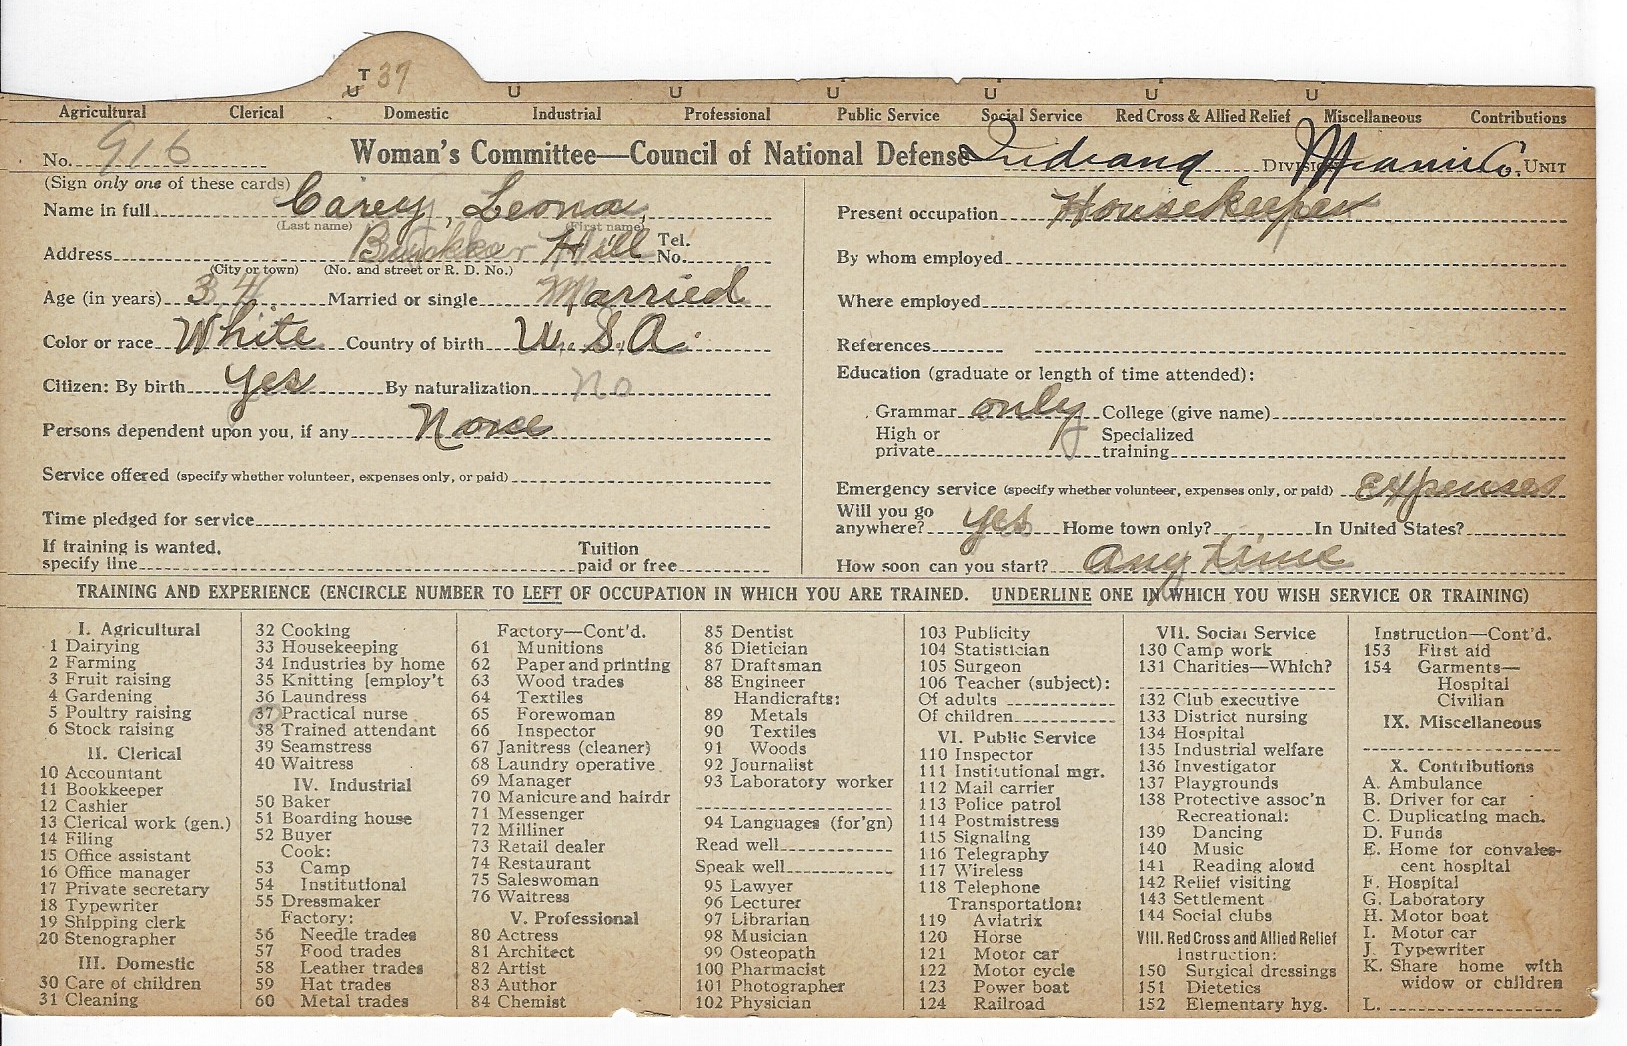 T 37
U U U U U U U
Agricultural Clerical Domestic Industrial Professional Public Service Social Service Red Cross & Allied Relief Miscellaneous Contributions
No. 916 Woman's Committee—Council of National Defense Indiana Division Miami Co. Unit
(Sign only one of these cards)
Name in full Carey, Leona
(Last name) (First name)
Address Bunker Hill Tel. No.
(City or town) (No. and street or R. D. No.)
Age (in years) 34 Married or single Married
Color or race White Country of birth U.S.A.
Citizen: By birth Yes By naturalization no
Persons dependent upon you, if any None
Service offered (specify whether volunteer, expenses only, or paid)
Time pledged for service
If training is wanted, specify line Tuition paid or free
Present occupation Housekeeper
By whom employed
Where employed
References
Education (graduate or length of time attended):
Grammar only College (give name)
High or private Specialized training
Emergency service (specify whether volunteer, expenses only, or paid) Expenses
Will you go anywhere? yes Home town only? In United States?
How soon can you start? any time
TRAINING AND EXPERIENCE (ENCIRCLE NUMBER TO LEFT OF OCCUPATION IN WHICH YOU ARE TRAINED. UNDERLINE ONE IN WHICH YOU WISH SERVICE OR TRAINING)
I. Agricultural
1 Dairying
2 Farming
3 Fruit raising
4 Gardening
5 Poultry raising
6 Stock raising
II. Clerical
10 Accountant
11 Bookkeeper
12 Cashier
13 Clerical work (gen.)
14 Filing
15 Office assistant
16 Office manager
17 Private secretary
18 Typewriter
19 Shipping clerk
20 Stenographer
III. Domestic
30 Care of children
31 Cleaning
32 Cooking
33 Housekeeping
34 Industries by home
35 Knitting [employ't
36 Laundress
37 Practical nurse
38 Trained attendant
39 Seamstress
40 Waitress
IV. Industrial
50 Baker
51 Boarding house
52 Buyer
Cook:
53 Camp
54 Institutional
55 Dressmaker
Factory:
56 Needle trades
57 Food trades
58 Leather trades
59 Hat trades
60 Metal trades
Factory—Cont'd.
61 Munitions
62 Paper and printing
63 Wood trades
64 Textiles
65 Forewoman
66 Inspector
67 Janitress (cleaner)
68 Laundry operative
69 Manager
70 Manicure and hairdr
71 Messenger
72 Milliner
73 Retail dealer
74 Restaurant
75 Saleswoman
76 Waitress
V. Professional
80 Actress
81 Architect
82 Artist
83 Author
84 Chemist
85 Dentist
86 Dietician
87 Draftsman
88 Engineer
Handicrafts:
89 Metals
90 Textiles
91 Woods
92 Journalist
93 Laboratory worker
94 Languages (for'gn)
Read well
Speak well
95 Lawyer
96 Lecturer
97 Librarian
98 Musician
99 Osteopath
100 Pharmacist
101 Photographer
102 Physician
103 Publicity
104 Statistician
105 Surgeon
106 Teacher (subject):
Of adults
Of children
VI. Public Service
110 Inspector
111 Institutional mgr.
112 Mail carrier
113 Police patrol
114 Postmistress
115 Signaling
116 Telegraphy
117 Wireless
118 Telephone
Transportation:
119 Aviatrix
120 Horse
121 Motor car
122 Motor cycle
123 Power boat
124 Railroad
VII. Social Service
130 Camp work
131 Charities—Which?
132 Club executive
133 District nursing
134 Hospital
135 Industrial welfare
136 Investigator
137 Playgrounds
138 Protective assoc'n
Recreational:
139 Dancing
140 Music
141 Reading aloud
142 Relief visiting
143 Settlement
144 Social clubs
VIII. Red Cross and Allied Relief
Instruction:
150 Surgical dressings
151 Dietetics
152 Elementary hyg.
Instruction—Cont'd.
153 First aid
154 Garments—
Hospital
Civilian
IX. Miscellaneous
X. Contributions
A. Ambulance
B. Driver for car
C. Duplicating mach.
D. Funds
E. Home for convales-
cent hospital
F. Hospital
G. Laboratory
H. Motor boat
I. Motor car
J. Typewriter
K. Share home with
widow or children
L.